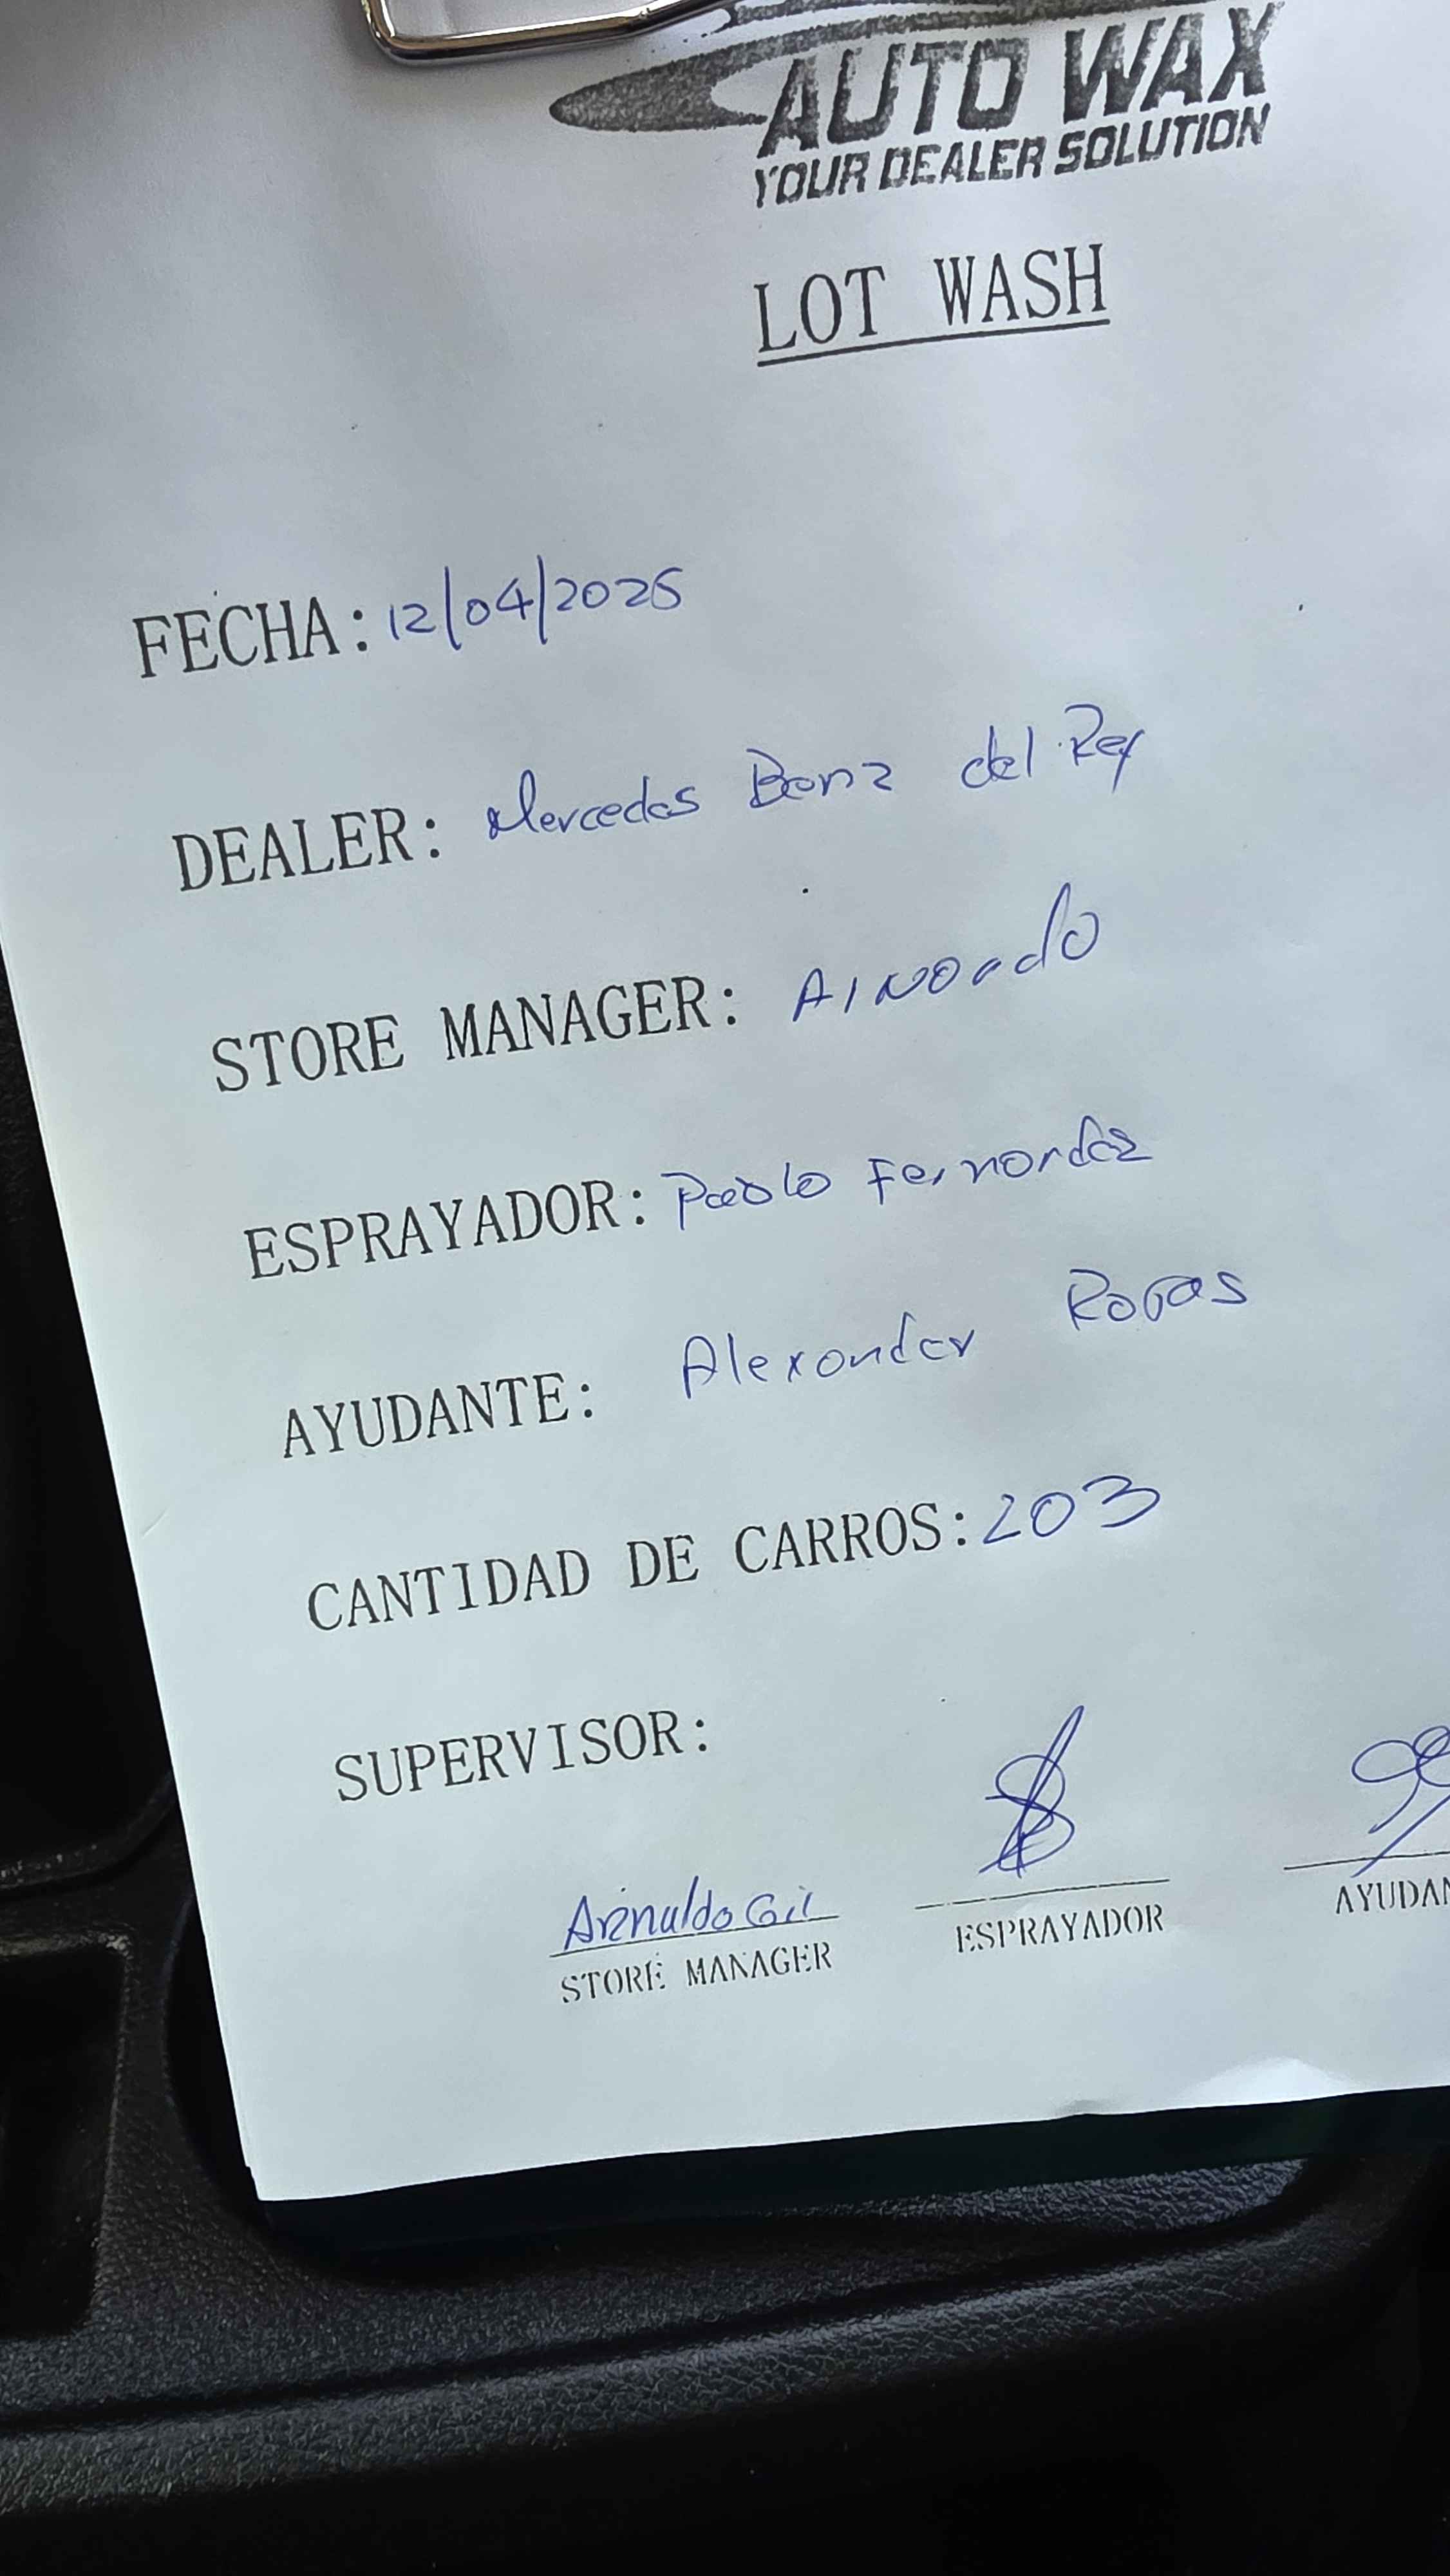 AUTO WAX
YOUR DEALER SOLUTION
LOT WASH
FECHA: 12/04/2025
DEALER: Mercedes Benz del Rey
STORE MANAGER:
ESPRAYADOR: Pablo Fernandez
AYUDANTE: Alexander Rojas
CANTIDAD DE CARROS: 203
SUPERVISOR:
Arnuldo Gil
STORE MANAGER ESPRAYADOR AYUDAN